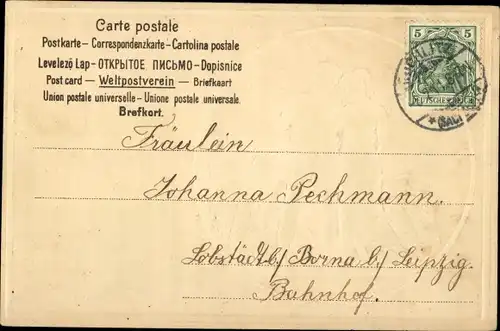 Carte postale
Postkarte – Correspondenzkarte – Cartolina postale
Levelező Lap – ОТКРЫТОЕ ПИСЬМО – Dopisnice
Post card — Weltpostverein — Briefkaart
Union postale universelle – Unione postale universale.
Brefkort.
5 5
DEUTSCHES REICH
Fräulein
Johanna Pechmann.
Lobstädt b/ Borna b/ Leipzig.
Bahnhof.